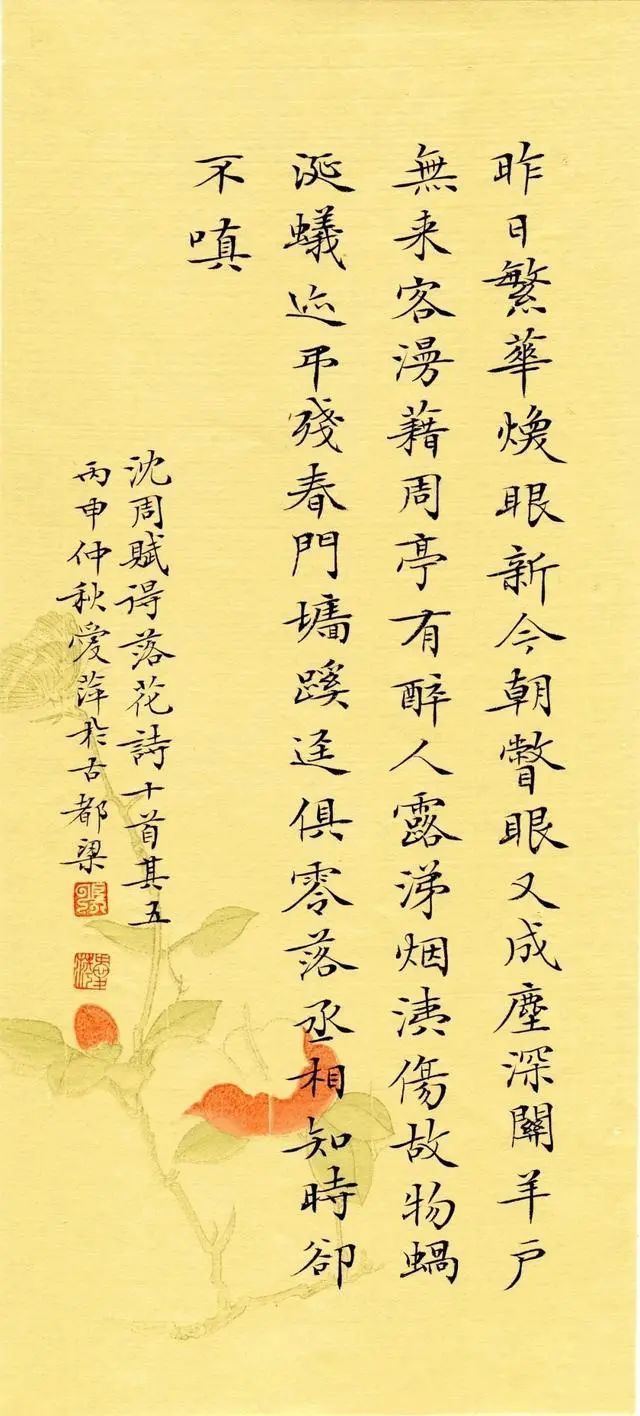 昨日繁華煥眼新今朝瞥眼又成塵深關羊户
無来客漫藉周亭有醉人露涕烟洟傷故物蝸
涎蟻迹弔殘春門墻蹊迳俱零落丞相知時卻
不嗔
沈周賦得落花詩十首其五
丙申仲秋愛萍於古都梁